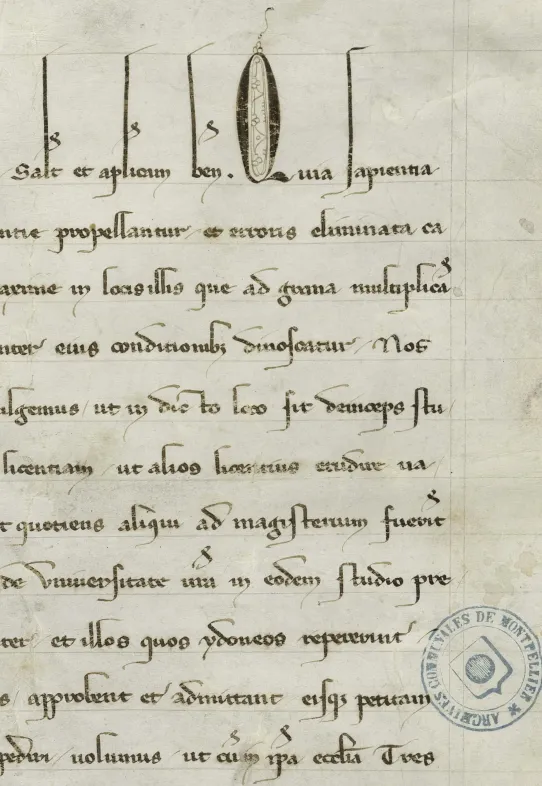 Salt et aplicam ben. Quia sapientia
ntie propellantur et erroris eliminata ca
in locis illis que ad grana multiplica
nter eius conditionibz dinoscatur Nos
ulgemus ut in dicto loco sit deinceps stu
licentiam ut alios licentius erudire ua
t quotiens aliqui ad magisterium fuerit
de Vniuersitate ura in eodem studio pre
ter et illos quos ydoneos repererint
s approbent et admittant eisqz petitam
pediri uolumus ut cum ipa ecclia Tres
ARCHIVES COMMUNALES DE MONTPELLIER